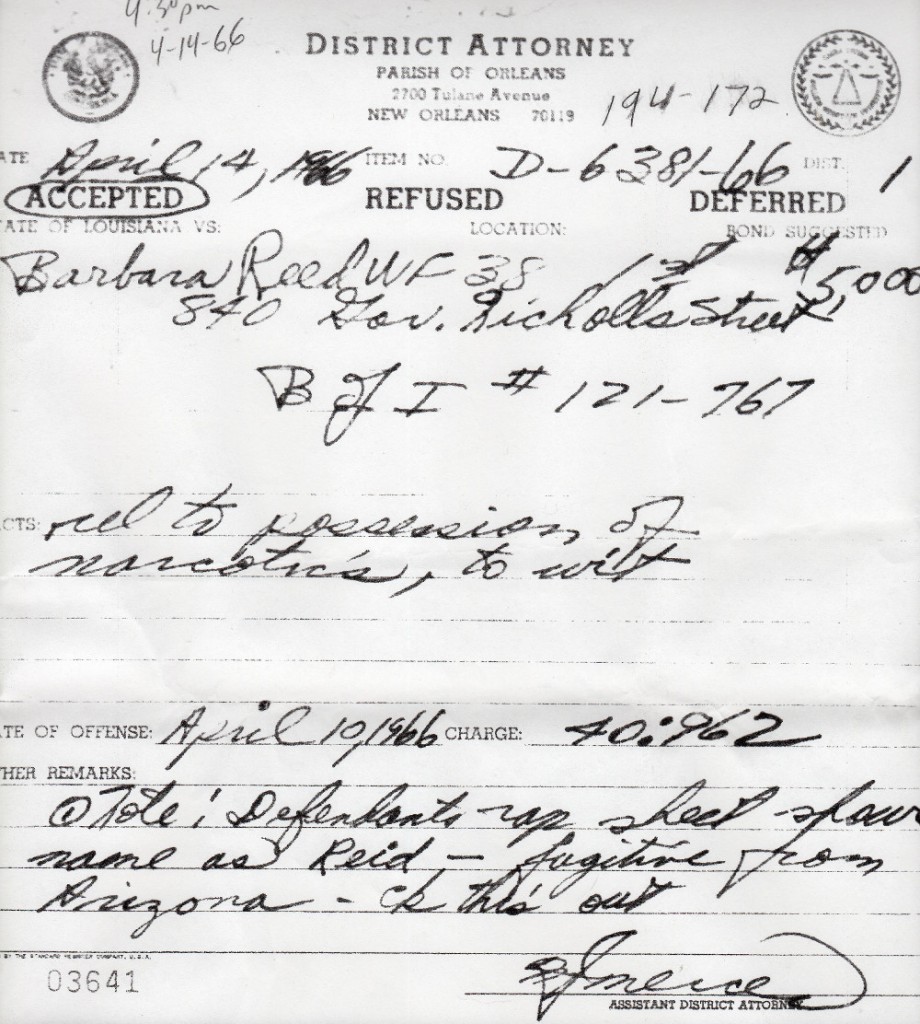 4:30pm
4-14-66
DISTRICT ATTORNEY
PARISH OF ORLEANS
2700 Tulane Avenue
NEW ORLEANS 70119
194-172
ATE April 14, 1966 ITEM NO. D-6381-66 DIST. 1
ACCEPTED REFUSED DEFERRED
ATE OF LOUISIANA VS: LOCATION: BOND SUGGESTED
Barbara Reed WF 38 1st $5,000
840 Gov. Nicholls Street
B of I # 121-767
CTS: rel to possession of
narcotic's, to wit
TE OF OFFENSE: April 10, 1966 CHARGE: 40:962
HER REMARKS:
Note: Defendants rap sheet shows
name as Reid, - fugitive from
Arizona - ck this out
ASSISTANT DISTRICT ATTORNEY
03641